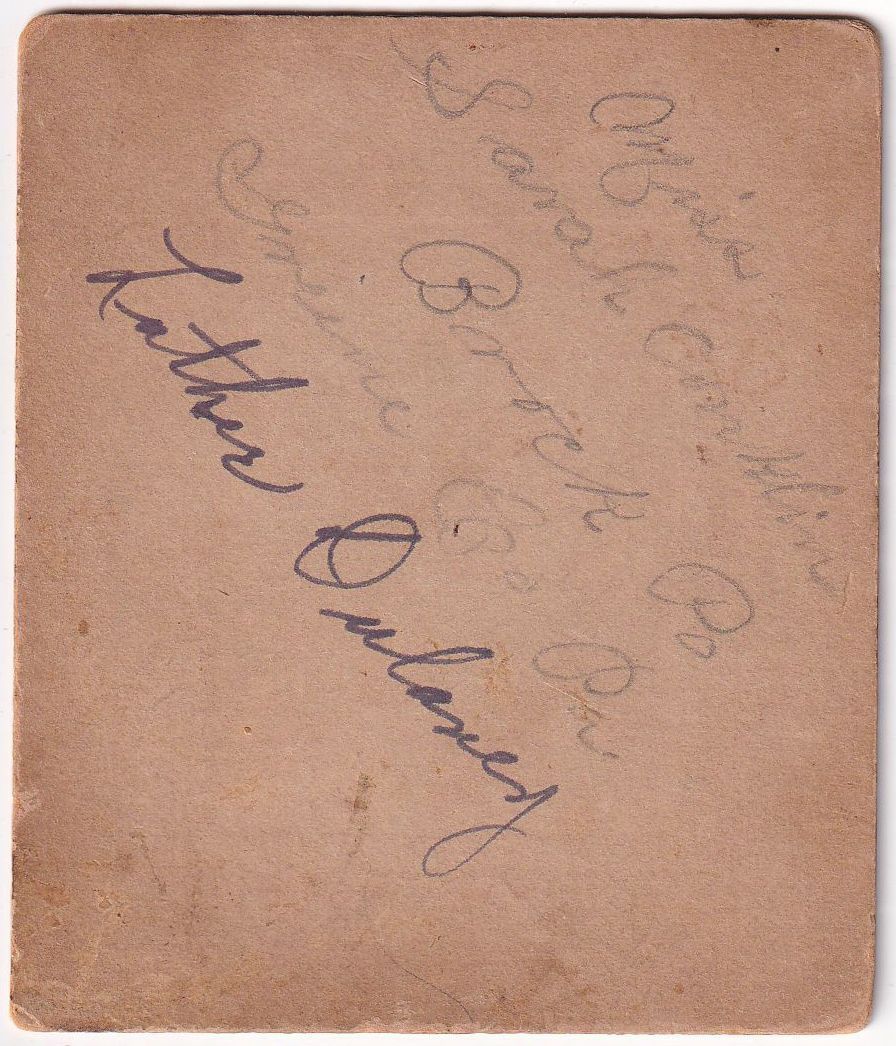 Miss
Sarah Conklin
Brock Po
Greene Co Pa
Father Dulaney